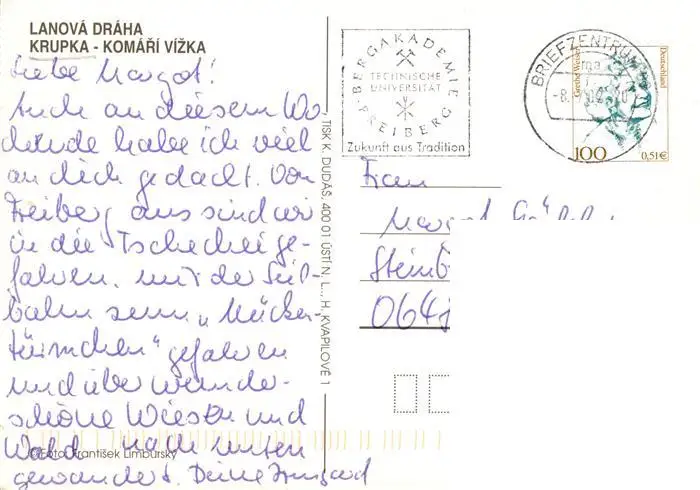 LANOVÁ DRÁHA
KRUPKA - KOMÁŘÍ VÍŽKA
Liebe Margot!
Auch an diesem Wo-
chenende habe ich viel
an dich gedacht. Von
Freiberg aus sind wir
in die Tschechei ge-
fahren. mit der Seil-
bahn zum „Mücken-
türmchen" gefahren
und über wunder-
schöne Wiesen und
Wald nach unten
gewandert. Deine Irmgard
© Foto: František Limburský
TISK K. DUDÁS, 400 01 ÚSTÍ N. L., H. KVAPILOVÉ 1
BERGAKADEMIE
TECHNISCHE
UNIVERSITÄT
FREIBERG
Zukunft aus Tradition
BRIEFZENTRUM
ma
-8.
Grethe Weiser
Deutschland
100
0,51€
Frau
Margot
Steinb
064